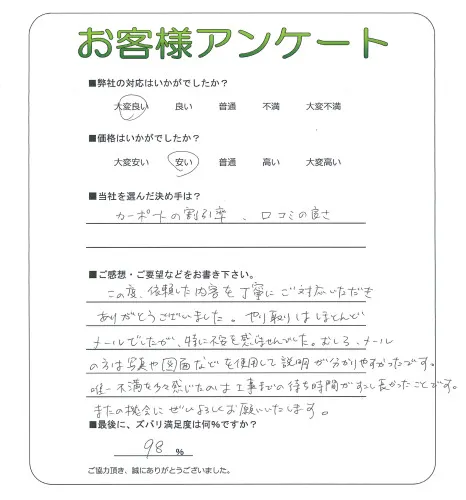 お客様アンケート
■弊社の対応はいかがでしたか?
大変良い 良い 普通 不満 大変不満
■価格はいかがでしたか?
大変安い 安い 普通 高い 大変高い
■当社を選んだ決め手は?
カーポートの割引率、口コミの良さ
■ご感想・ご要望などをお書き下さい。
この度、依頼した内容を丁寧にご対応いただき
ありがとうございました。やり取りはほとんど
メールでしたが、特に不安を感じませんでした。むしろ、メール
の方は写真や図面などを使用して説明が分かりやすかったです。
唯一不満を多々感じたのは工事までの待ち時間がすこし長かったことです。
またの機会にぜひよろしくお願いいたします。
■最後に、ズバリ満足度は何%ですか?
98 %
ご協力頂き、誠にありがとうございました。